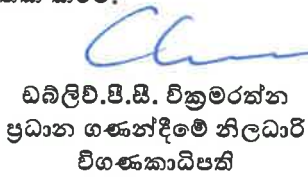 ඩබ්ලිව්.පී.සී. වික්‍රමරත්න
ප්‍රධාන ගණන්දීමේ නිලධාරි
විගණකාධිපති